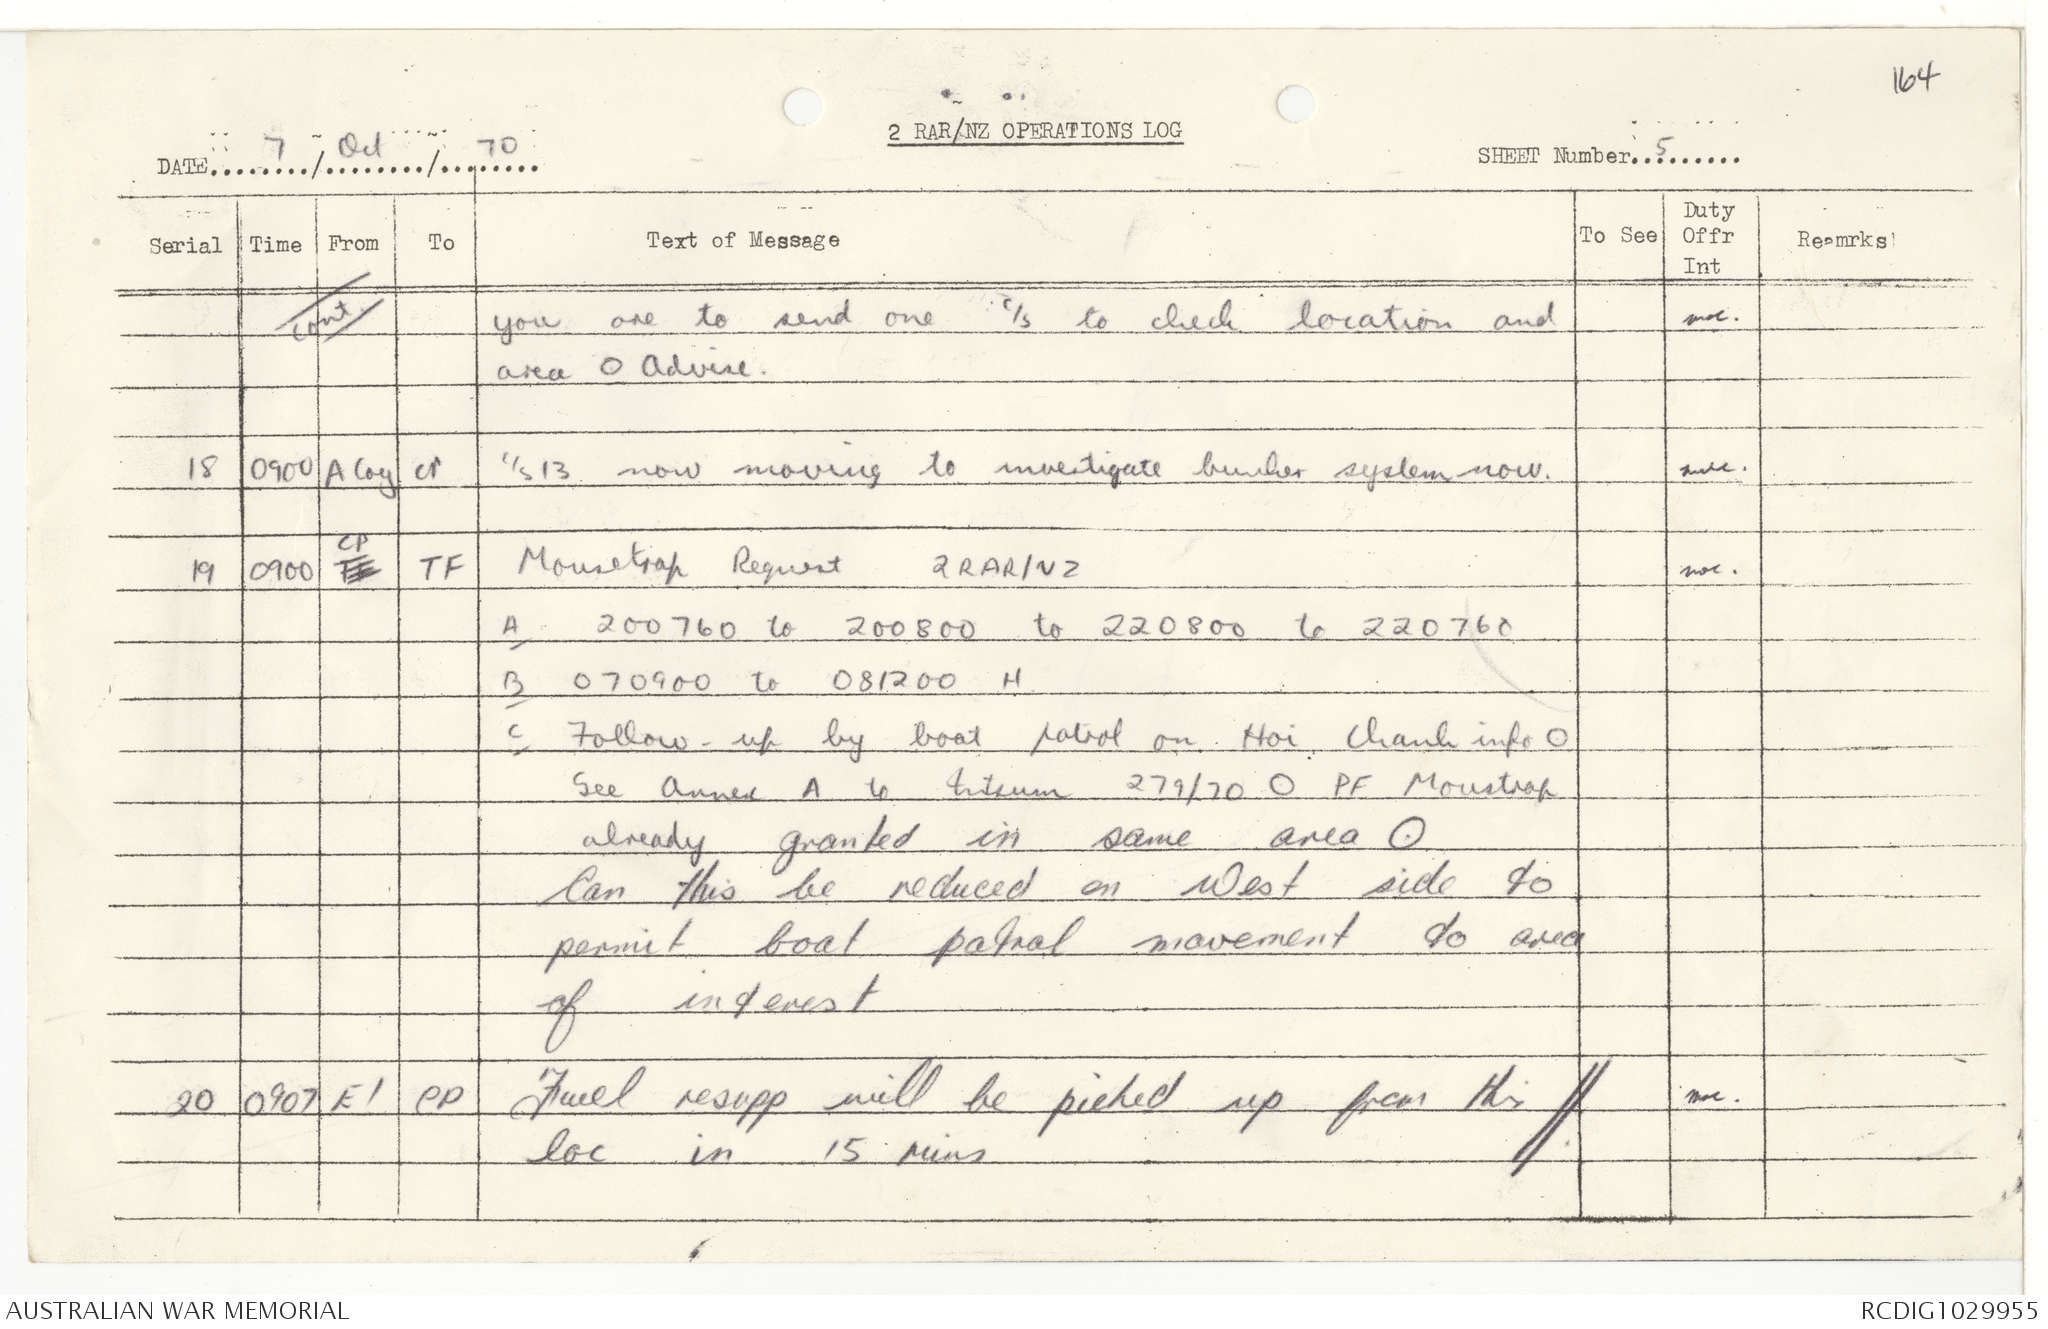 164
2 RAR/NZ OPERATIONS LOG
DATE 7 / Oct / 70
SHEET Number 5
Serial Time From To Text of Message To See Duty Offr Int Reamrks
cont. you are to send one c/s to check location and
area O Advise.
18 0900 A Coy CP c/s 13 now moving to investigate bunker system now.
CP
19 0900 TF Mousetrap Request 2RAR/NZ
A 200760 to 200800 to 220800 to 220760
B 070900 to 081200 H
C Follow-up by boat patrol on Hoi Chanh info O
See Annex A to Intsum 279/70 O PF Moustrap
already granted in same area O
Can this be reduced on West side to
permit boat patrol movement to area
of interest
20 0907 E1 CP Fuel resupp will be picked up from this
loc in 15 mins
AUSTRALIAN WAR MEMORIAL
RCDIG1029955